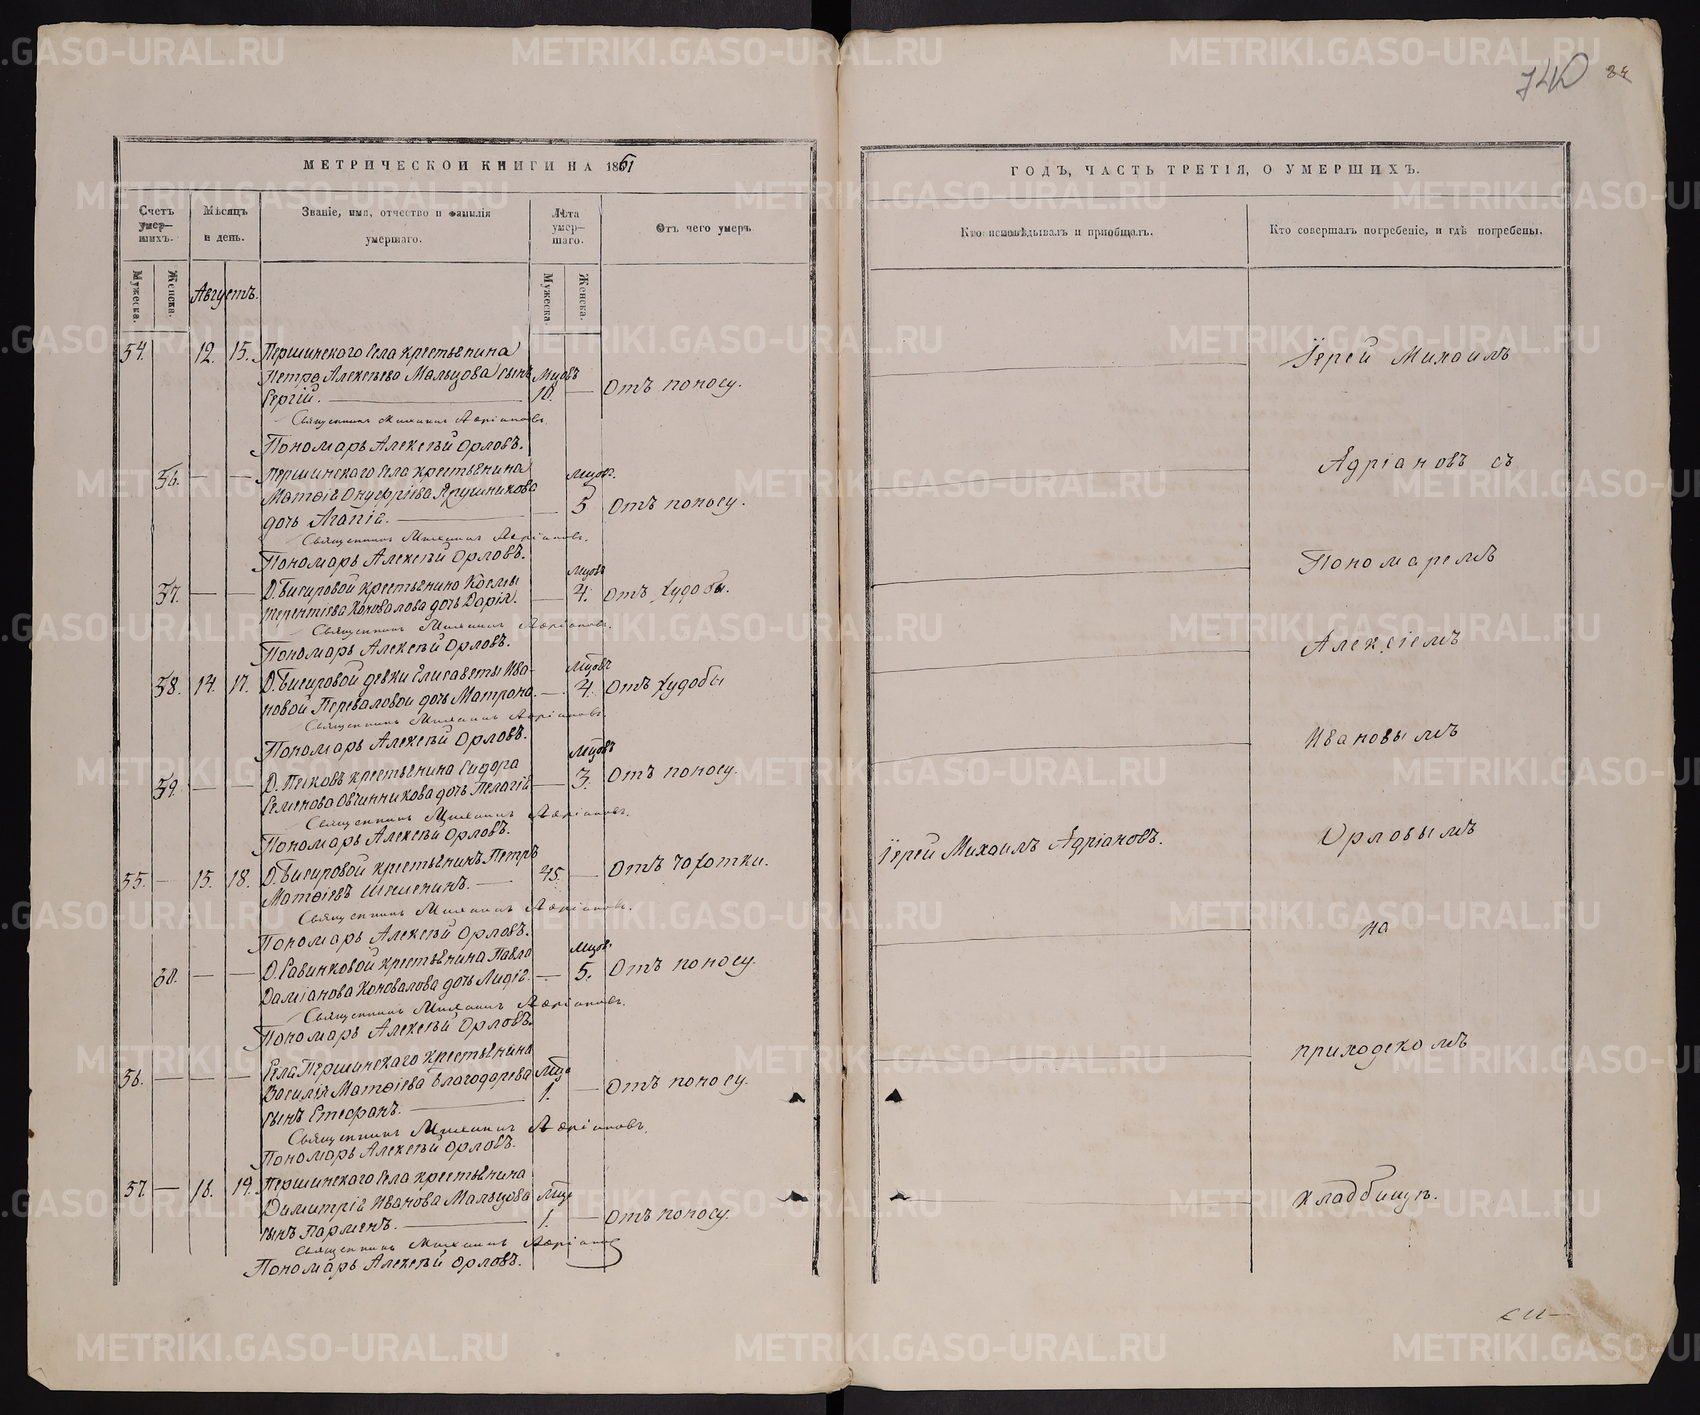 740
МЕТРИЧЕСКОЙ КНИГИ НА 1861
ГОДЪ, ЧАСТЬ ТРЕТІЯ, О УМЕРШИХЪ.
Счетъ умер-шихъ.
Мѣсяцъ и день.
Званіе, имя, отчество и фамилія умершаго.
Лѣта умер-шаго.
Отъ чего умеръ
Кто исповѣдывалъ и пріобщалъ.
Кто совершалъ погребеніе, и гдѣ погребены.
Мужеска. Женска.
Мужеска. Женска.
Августъ.
54. 12. 15. Першинскаго Села крестьянина
Петра Алексѣева Мальцова сынъ Мцовъ
Сергій. 10. Отъ поносу.
Священникъ Михаилъ Адріановъ.
Пономарь Алексѣй Орловъ.
36. Першинскаго Села крестьянина Мцовъ.
Матѳія Онуфріева Ярушникова
дочь Агапія. 5 Отъ поносу.
Священникъ Михаилъ Адріановъ.
Пономарь Алексѣй Орловъ.
37. Д. Бисировой крестьянина Космы Мцовъ
Терентіева Коновалова дочь Дарія. 4. Отъ худобы.
Священникъ Михаилъ Адріановъ.
Пономарь Алексѣй Орловъ.
38. 14. 17. Д. Бисировой девки Елисаветы Ива- Мцовъ
новой Переваловой дочь Матрона. 4. Отъ худобы
Священникъ Михаилъ Адріановъ.
Пономарь Алексѣй Орловъ.
39. Д. крестьянина Сидора Мцовъ
Семенова Овчинникова дочь Пелагія 3. Отъ поносу.
Священникъ Михаилъ Адріановъ.
Пономарь Алексѣй Орловъ.
55. 15. 18. Д. Бисировой крестьянинъ Петръ
Матѳіевъ 45. Отъ чахотки.
Священникъ Михаилъ Адріановъ.
Пономарь Алексѣй Орловъ.
Д. крестьянина Павла Мцовъ
Даміанова Коновалова дочь Лидія. 5. Отъ поносу.
Священникъ Михаилъ Адріановъ.
Пономарь Алексѣй Орловъ.
56. Села Першинскаго крестьянина
Василія Матѳіева Благодарева Мцъ
сынъ Стефанъ. 1. Отъ поносу.
Священникъ Михаилъ Адріановъ.
Пономарь Алексѣй Орловъ.
57. 18. 19. Першинскаго Села крестьянина
Димитрія Иванова Мальцова Мцъ
сынъ Парменъ. 1. Отъ поносу.
Священникъ Михаилъ Адріановъ
Пономарь Алексѣй Орловъ.
Іерей Михаилъ Адріановъ.
Іерей Михаилъ
Адріановъ съ
Пономаремъ
Алексіемъ
Ивановымъ
Орловымъ
на
приходскомъ
кладбищѣ.
METRIKI.GASO-URAL.RU